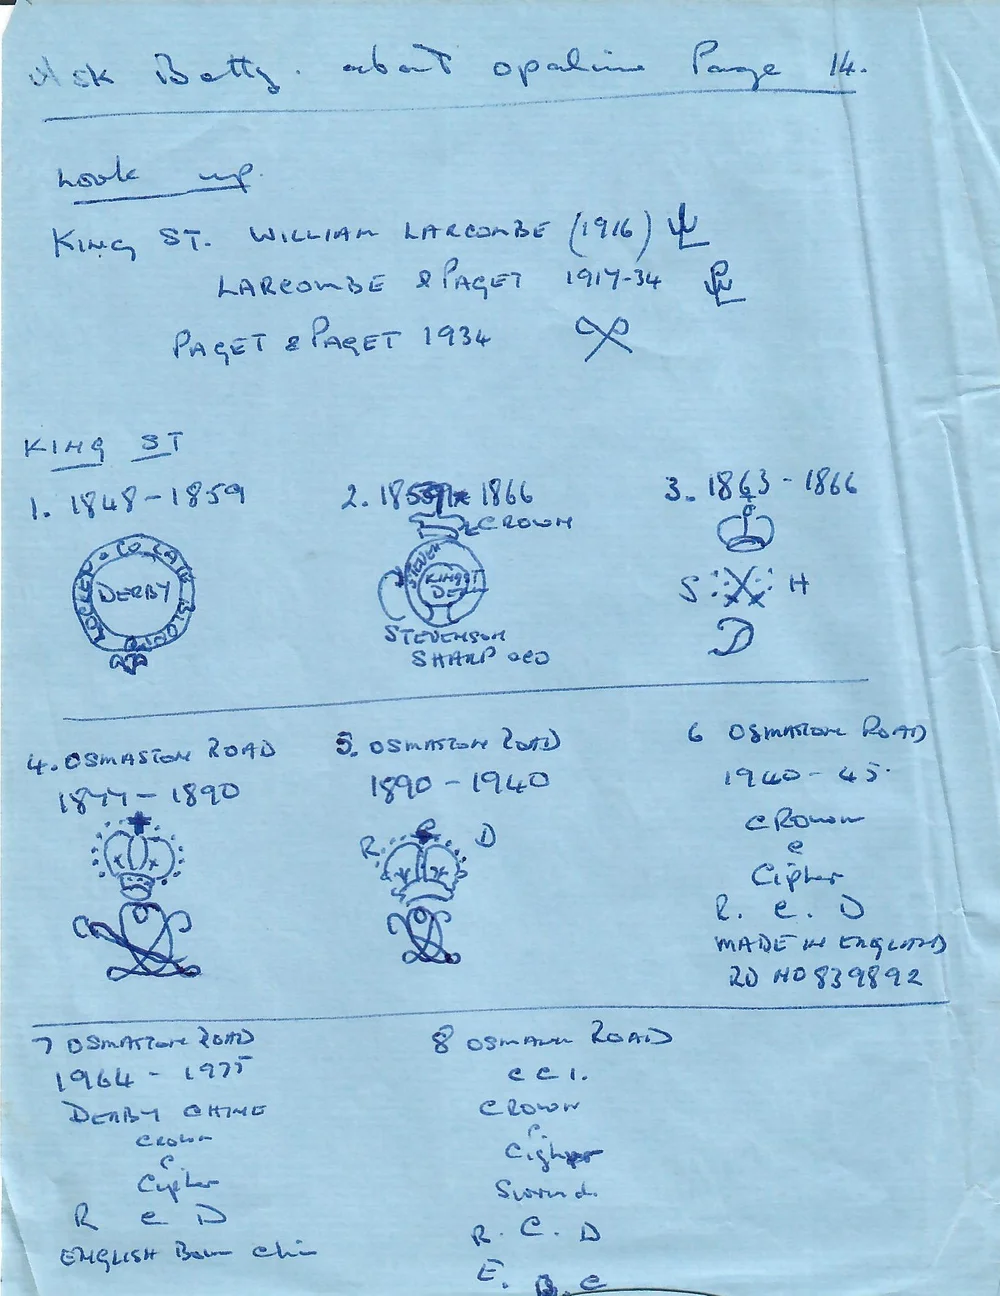 Ask Betty. about opaline Page 14.
Look up.
KING ST. WILLIAM LARCOMBE (1916) WL
LARCOMBE & PAGET 1917-34
PAGET & PAGET 1934
KING ST
1. 1848-1859
LOCKER & CO LATE BLOOR
DERBY
2. 1859 1866
CROWN
STEVEN
KING ST
DE
STEVENSON
SHARP & CO
3. 1863 - 1866
S H
D
4. OSMASTON ROAD
1877-1890
5. OSMASTON ROAD
1890-1940
R C D
6 OSMASTON ROAD
1940-45.
CROWN
C
Cipher
R. C. D
MADE IN ENGLAND
RD NO 839892
7 OSMASTON ROAD
1964-1975
DERBY CHINE
CROWN
C.
Cypher
R C D
ENGLISH Bone Chin
8 OSMANN ROAD
CROWN
C.
Cigher
Sword.
R. C. D
E. B. C